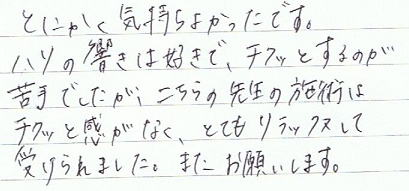 とにかく気持ちよかったです。
ハリの響きは好きで、チクッとするのが
苦手でしたが、こちらの先生の施術は
チクッと感がなく、とてもリラックスして
受けられました。またお願いします。